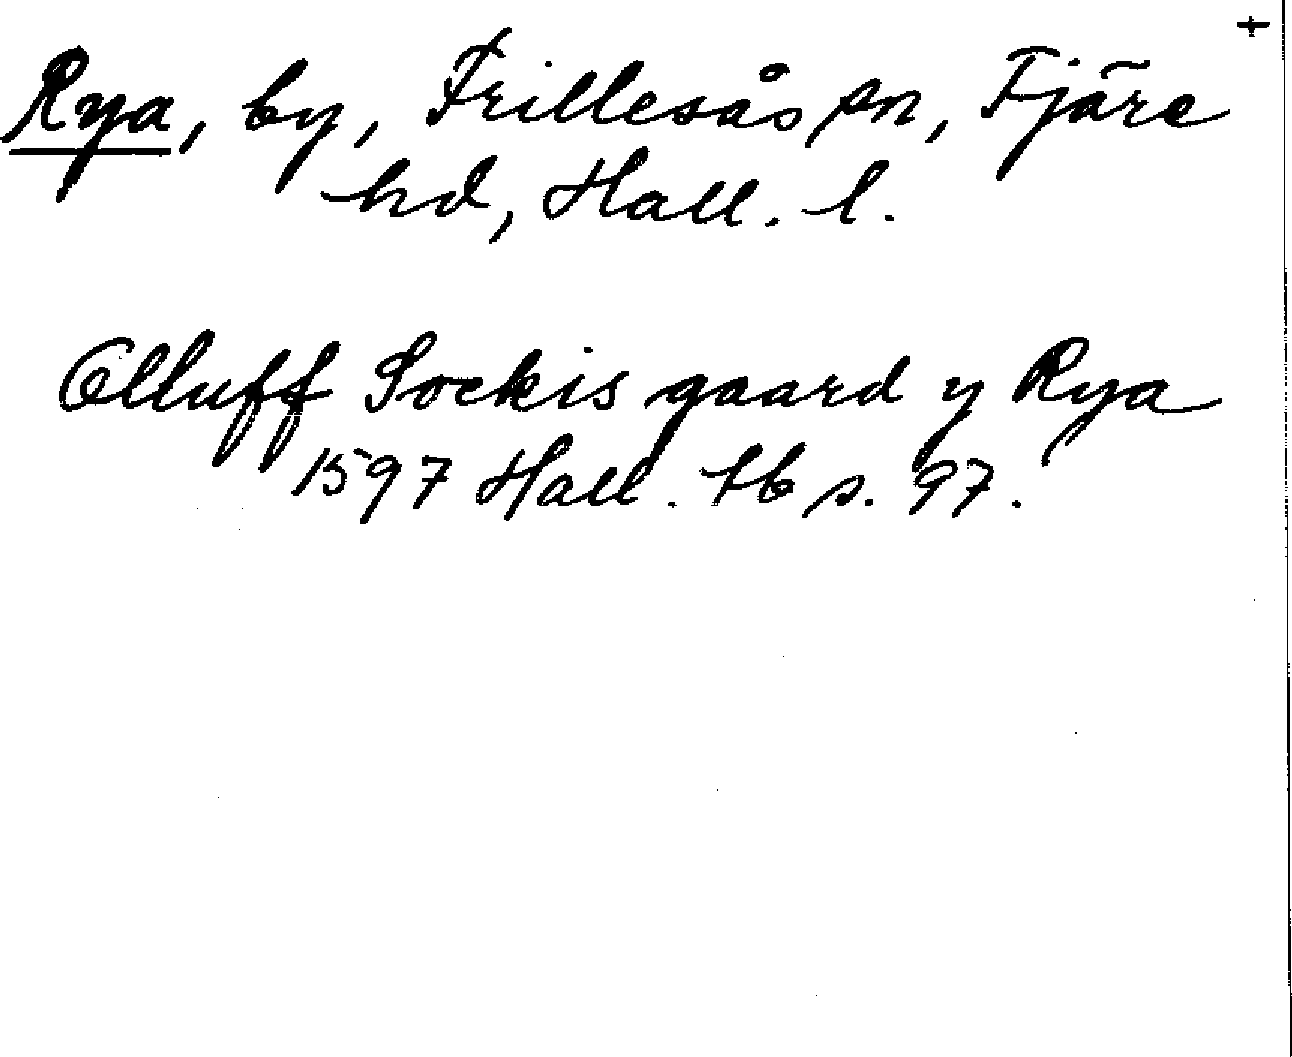 +
Rya, by, Frillesås sn, Fjäre
hd, Hall. l.
Olluff Sockis gaard y Rya
1597 Hall. tb s. 97.